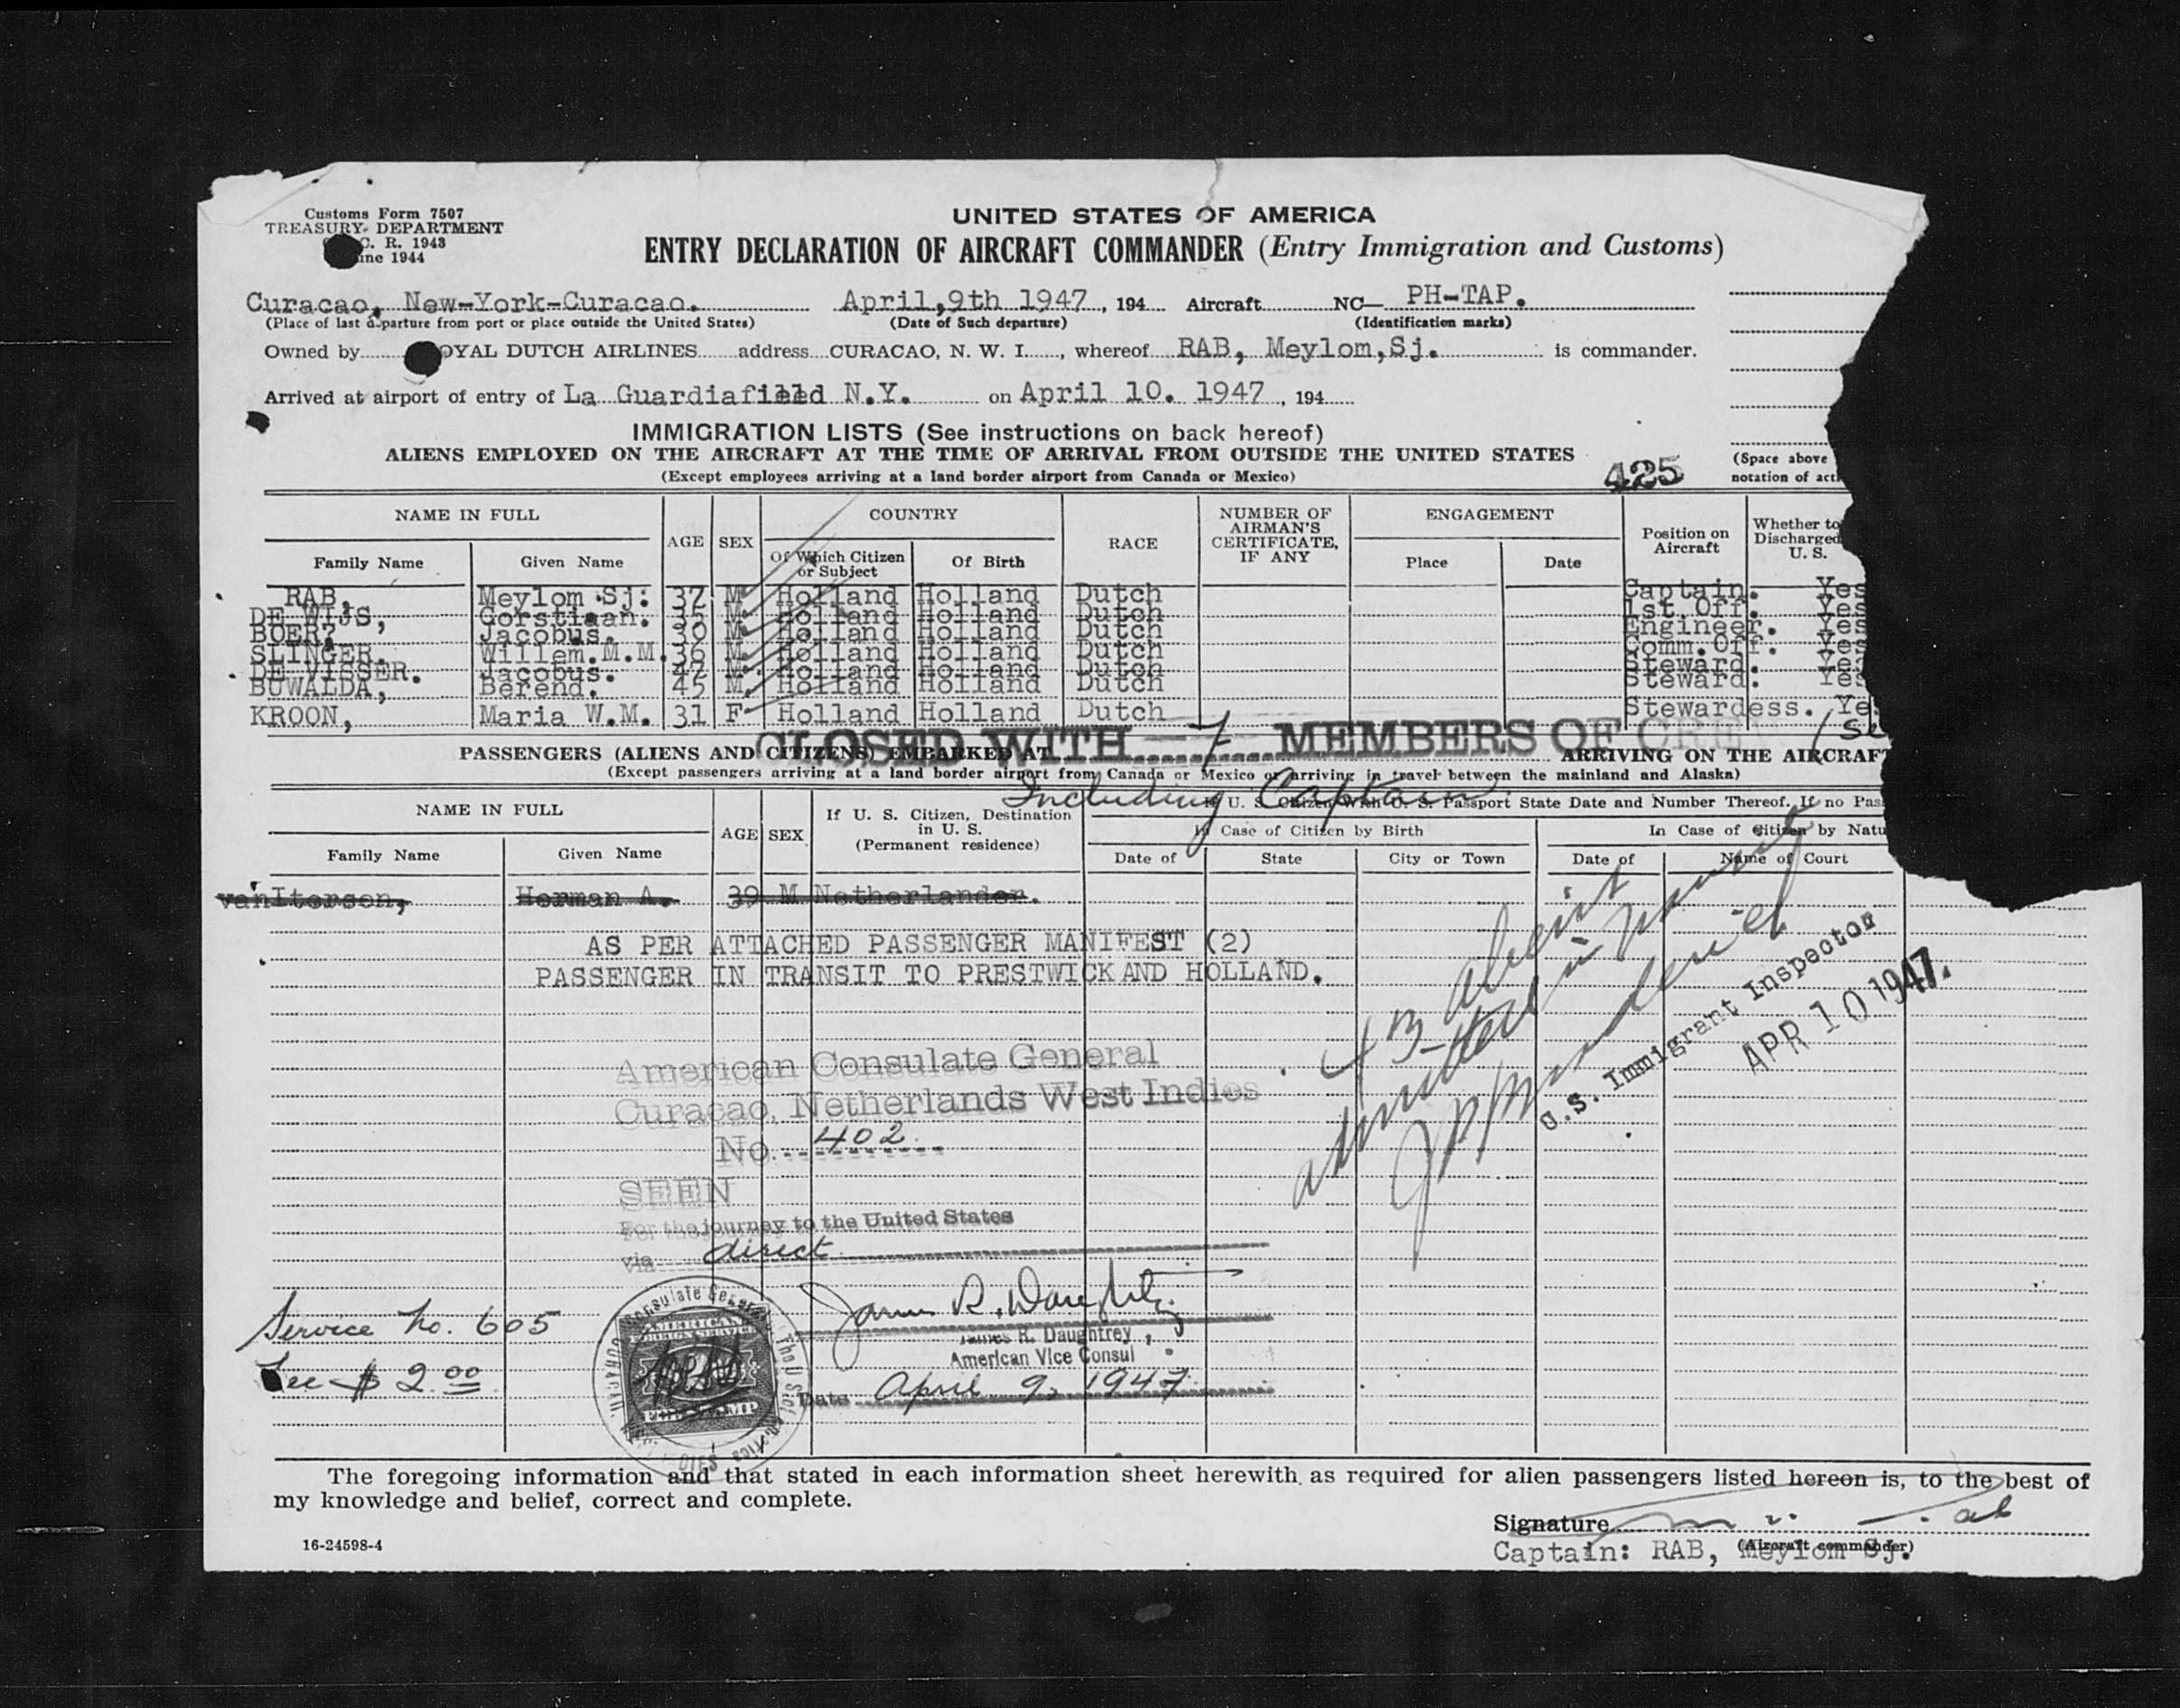 Customs Form 7507
TREASURY DEPARTMENT
C. R. 1943
une 1944
UNITED STATES OF AMERICA
ENTRY DECLARATION OF AIRCRAFT COMMANDER (Entry Immigration and Customs)
Curacao, New-York-Curacao. April,9th 1947, 194 Aircraft NC— PH-TAP.
(Place of last departure from port or place outside the United States) (Date of Such departure) (Identification marks)
Owned by OYAL DUTCH AIRLINES address CURACAO, N. W. I., whereof RAB, Meylom,Sj. is commander.
Arrived at airport of entry of La Guardiafield N.Y. on April 10. 1947, 194
IMMIGRATION LISTS (See instructions on back hereof)
ALIENS EMPLOYED ON THE AIRCRAFT AT THE TIME OF ARRIVAL FROM OUTSIDE THE UNITED STATES
(Except employees arriving at a land border airport from Canada or Mexico)
425
(Space above
notation of acti
NAME IN FULL AGE SEX COUNTRY RACE NUMBER OF AIRMAN'S CERTIFICATE, IF ANY ENGAGEMENT Position on Aircraft Whether to Discharged U. S.
Family Name Given Name Of Which Citizen or Subject Of Birth Place Date
RAB, Meylom Sj: 37 M Holland Holland Dutch Captain. Yes
DE WIJS, Gorstiaan. 35 M. Holland Holland Dutch 1st Off. Yes
BOER? Jacobus. 30 M. Holland Holland Dutch Engineer. Yes
SLINGER. Willem.M.M. 36 M. Holland Holland Dutch Comm.Off. Yes
DE VISSER. Jacobus. 42 M. Holland Holland Dutch Steward. Yes
BUWALDA, Berend. 45 M. Holland Holland Dutch Steward. Yes
KROON, Maria W.M. 31 F Holland Holland Dutch Stewardess. Yes
CLOSED WITH 7 MEMBERS OF CRE
PASSENGERS (ALIENS AND CITIZENS) EMBARKED AT ARRIVING ON THE AIRCRAFT
(Except passengers arriving at a land border airport from Canada or Mexico or arriving in travel between the mainland and Alaska)
Including Captain
NAME IN FULL AGE SEX If U. S. Citizen, Destination in U. S. (Permanent residence) If U. S. Citizen With U. S. Passport State Date and Number Thereof. If no Pas
In Case of Citizen by Birth In Case of Citizen by Natu
Family Name Given Name Date of State City or Town Date of Name of Court
vanIterson, Herman A. 39 M Netherlander.
AS PER ATTACHED PASSENGER MANIFEST (2)
PASSENGER IN TRANSIT TO PRESTWICK AND HOLLAND.
admitted in
U.S. Immigrant Inspector
APR 10 1947.
American Consulate General
Curacao, Netherlands West Indies
No. 402
SEEN
For the journey to the United States
via direct
Service No. 605
Fee $ 2.00
AMERICAN
FOREIGN SERVICE
FEE STAMP
James R. Daughtrey
James R. Daughtrey,
American Vice Consul
Date April 9, 1947.
The foregoing information and that stated in each information sheet herewith as required for alien passengers listed hereon is, to the best of
my knowledge and belief, correct and complete.
Signature
(Aircraft commander)
Captain: RAB, Meylom Sj.
16-24598-4